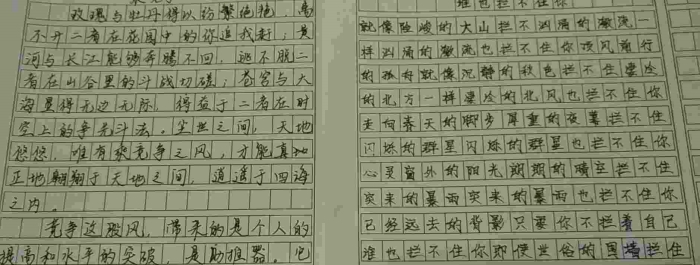 玫瑰与牡丹得以纷繁艳艳，离
不开二者在花园中的你追我赶；黄
河与长江能够奔腾不回，逃不脱二
者在山谷里的斗战切磋；苍宫与大
海显得无边无际，得益于二者在时
空上的争先斗法。尘世之间，天地
悠悠，唯有乘竞争之风，才能真切
正地翱翔于天地之间，逍遥于四海
之内。
竞争这股风，带来的是个人的
提高和水平的突破，是助推器。它
谁也拦不住你
就像险峻的大山拦不汹涌的激流一
样汹涌的激流也拦不住你顶风前行
的孩舟就像沉静的秋色拦不住寒冷
的北方一样寒冷的北风也拦不住你
走向春天的脚步厚重的夜幕拦不住
闪烁的群星闪烁的群星也拦不住你
心灵窗外的阳光朗朗的晴空拦不住
突来的暴雨突来的暴雨也拦不住你
已经远去的背影只要你不拦着自己
谁也拦不住你即使世俗的围墙拦住